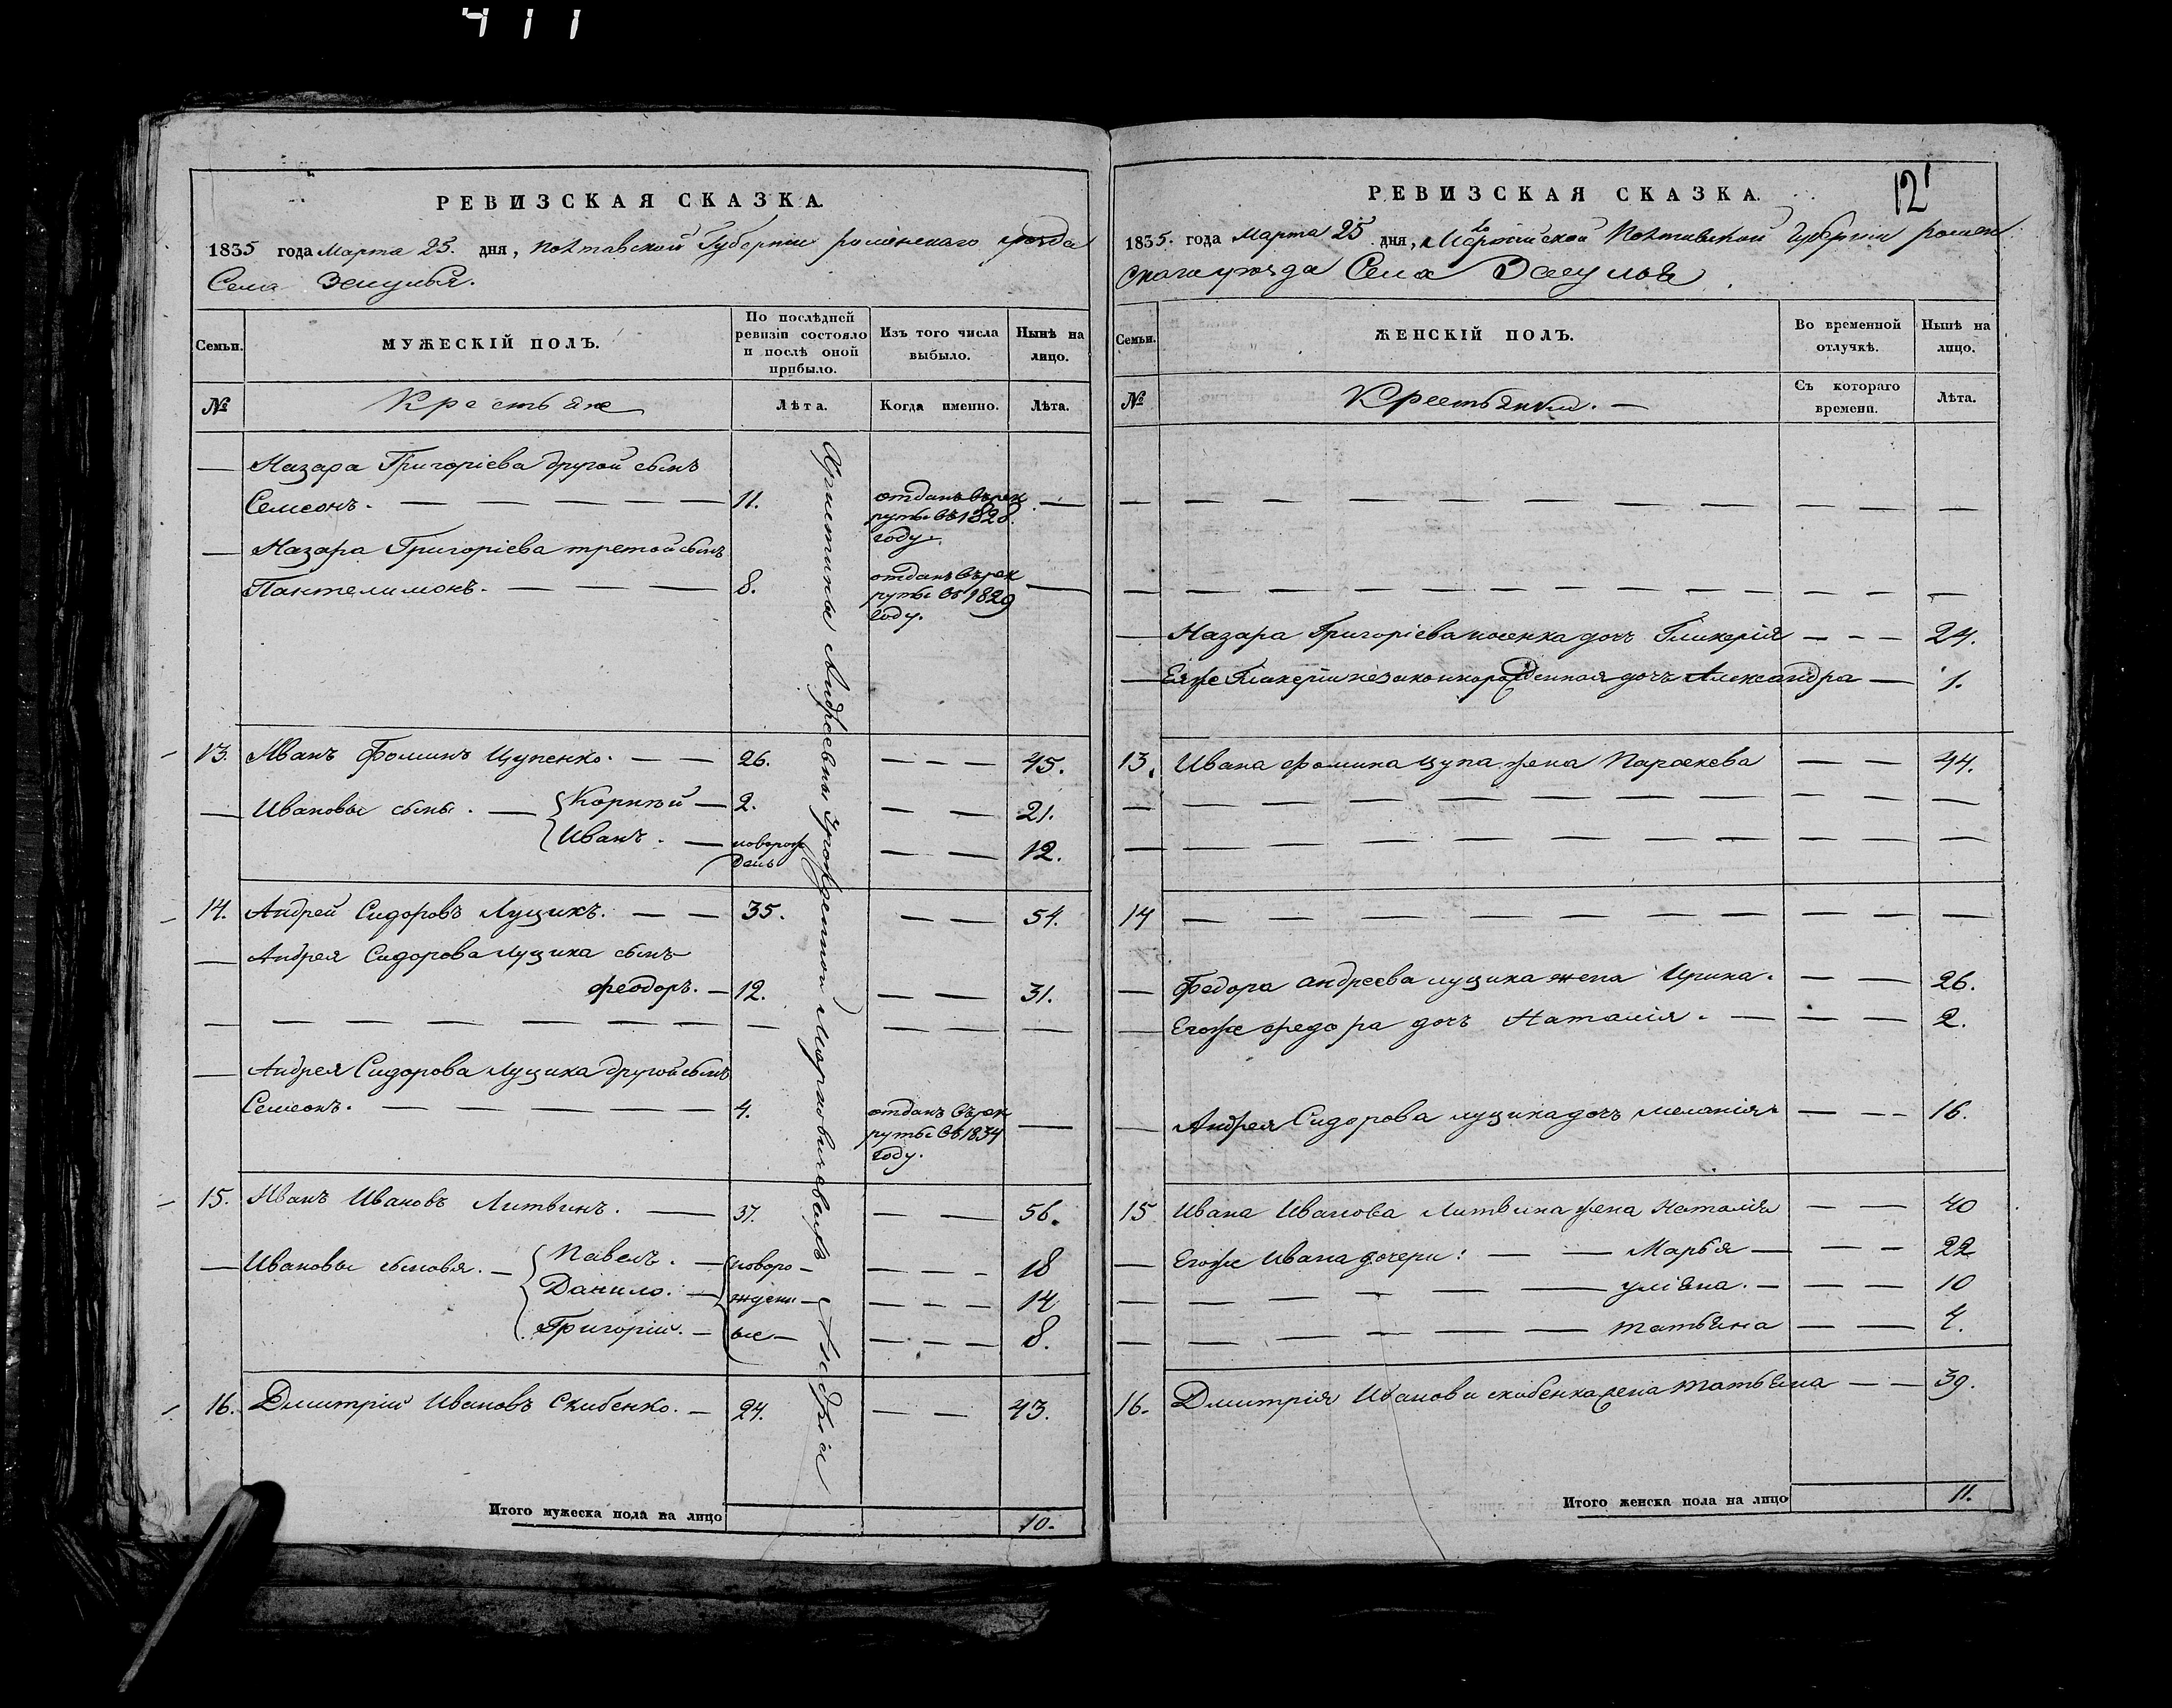 411
РЕВИЗСКАЯ СКАЗКА.
1835 года Марта 25. дня, Полтавской Губерніи роменскаго уѣзда
Села
Семьи.
МУЖЕСКІЙ ПОЛЪ.
По послѣдней ревизіи состояло и послѣ оной прибыло.
Изъ того числа выбыло.
Нынѣ на лицо.
№
Крестьяне
Лѣта.
Когда именно.
Лѣта.
— Назара Григоріева другой сынъ
Семеонъ. — — — — — 11. отданъ въ рек
руты въ 1828. —
году.
— Назара Григоріева третой сынъ
Пантелимонъ. — — — 8. отданъ въ рек
руты въ 1829 —
году.
13. Иванъ Фоминъ Цупенко. — — 26. — — — 45.
— Ивановы сыны. — Корнѣй — 2. — — 21.
Иванъ. — новорож
денъ — — 12.
14. Андрей Сидоровъ Луцикъ. — — 35. — — 54.
— Андрея Сидорова Луцика сынъ
Феодоръ. — 12. — — 31.
— — — — — — — — — — — —
— Андрея Сидорова Луцика другой сынъ
Семеонъ. — — — — — 4. отданъ въ рек
руты въ 1834 —
году.
15. Иванъ Ивановъ Литвинъ. — 37. — — 56.
— Ивановы сыновя. — Павелъ. — новоро — — — — 18
Данило. — жденн — — — — 14
Григорій. — ые — — — — 8.
16. Дмитрій Ивановъ Скибенко. — 24. — — 43.
Итого мужеска пола на лицо 10.
Андреевны урожденной Марковичевыхъ
РЕВИЗСКАЯ СКАЗКА.
12
1835. года Марта 25 дня, Полтавской Губерніи ромен
скаго уѣзда Села
Семьи.
ЖЕНСКІЙ ПОЛЪ.
Во временной отлучкѣ.
Нынѣ на лицо.
№
Крестьянки. —
Съ котораго времени.
Лѣта.
— — — — — — — — — — —
— — — — — — — — — — —
— Назара Григоріева дочь Гликерія — — — 24.
— Еяже Гликеріи незаконнорожденная дочь Александра — 1.
13. Ивана Фомина Цупа жена Параскева — — 44.
— — — — — — — — — — —
— — — — — — — — — — —
14 — — — — — — — — — —
— Федора андреева луцика жена Ирина. — — 26.
— Егоже федора дочь Наталія. — — — 2.
— Андрея Сидорова луцика дочь меланія — — — 16.
15 Ивана Иванова Литвина жена Наталія — — 40
— Егоже Ивана дочери: — — Марья — — — 22
— — — — — — — уліяна. — — — 10
— — — — — — — татьяна — — 4.
16. Дмитрія Иванова скибенка жена татьяна — — 39.
Итого женска пола на лицо 11.